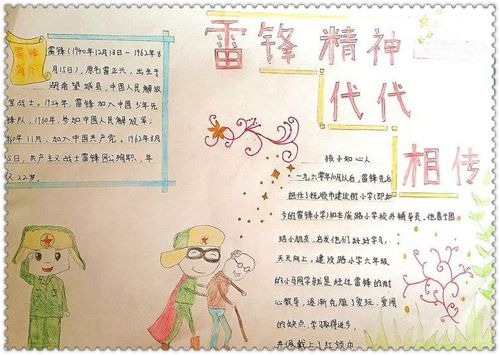 雷锋精神
代代
相传
雷锋
简介
雷锋(1940年12月18日—1962年8
月15日),原名雷正兴,出生于
湖南望城县,中国人民解放
军战士。1954年,雷锋加入中国少年先
锋队,1960年,参加中国人民解放军,
1960年11月,加入中国共产党。1962年8月
15日,共产主义战士雷锋因公殉职,年
仅22岁。
孩子知心人
一九六零年10月以后,雷锋先后
担任了抚顺市建设街小学(即如
今的雷锋小学)和本溪路小学校外辅导员,他善于团
结小朋友,启发他们好好学习,
天天向上,建设路小学六年级
的小同学就是经过雷锋的耐
心教导,逐渐克服了爱玩、爱闹
的缺点,学习取得进步,
并佩戴上了红领巾